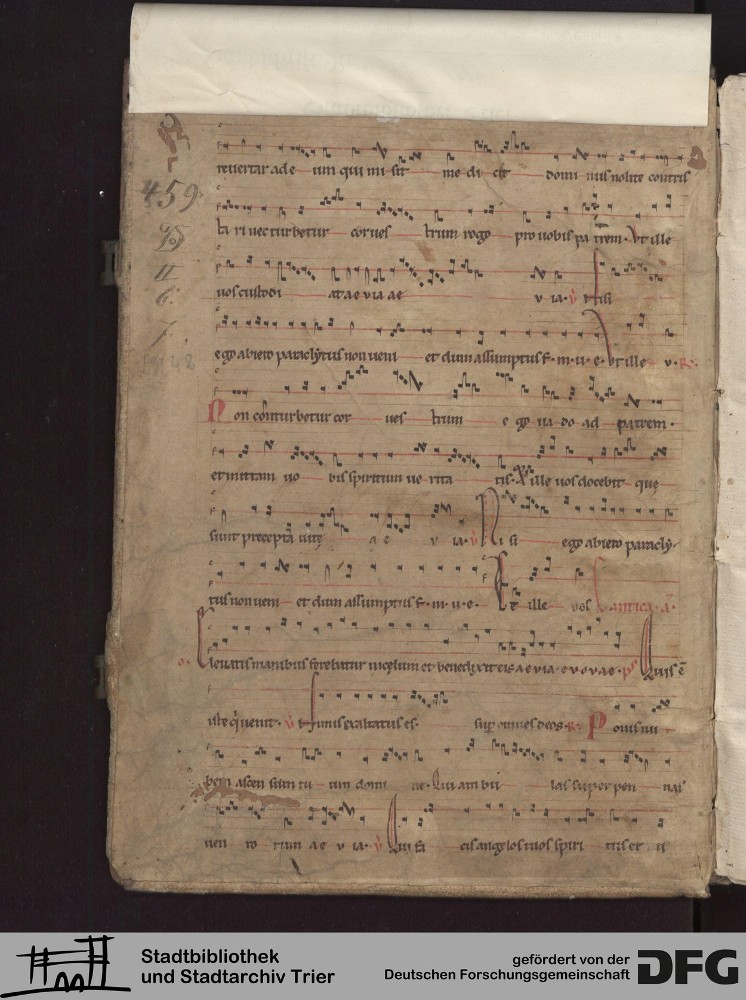 revertar ad e um qui mi sit me di cit domi nus nolite contris
ta ri nec turbetur cor ves trum rogo pro vobis pa trem. Vt ille
459.
vos custodi at a e via a e v ia. Nisi
ego abiero paraclytus non veni et dum assumptus f. m. u. e. Vt ille v. R.
Non conturbetur cor ves trum e go va do ad patrem.
et mittam vo bis spiritum ve rita tis. ille vos docebit que
sunt precepta vite a e v ia. Ni si ego abiero paracly
tus non veni et dum assumptus f. m. u. e. Et ille vos Cantica. a.
Elevatis manibus ferebatur in celum et benedixit eis a e v ia. e v o v a e. ps Quis e
iste qui venit. nimis exaltatus es. super omnes deos. R. Ponis nu
bem ascen sum tu um domi ne. Qui am bu las super pen nas
ven to rum a e v ia. Qui fa cis angelos tuos spiri tus et
Stadtbibliothek
und Stadtarchiv Trier
gefördert von der
Deutschen Forschungsgemeinschaft
DFG